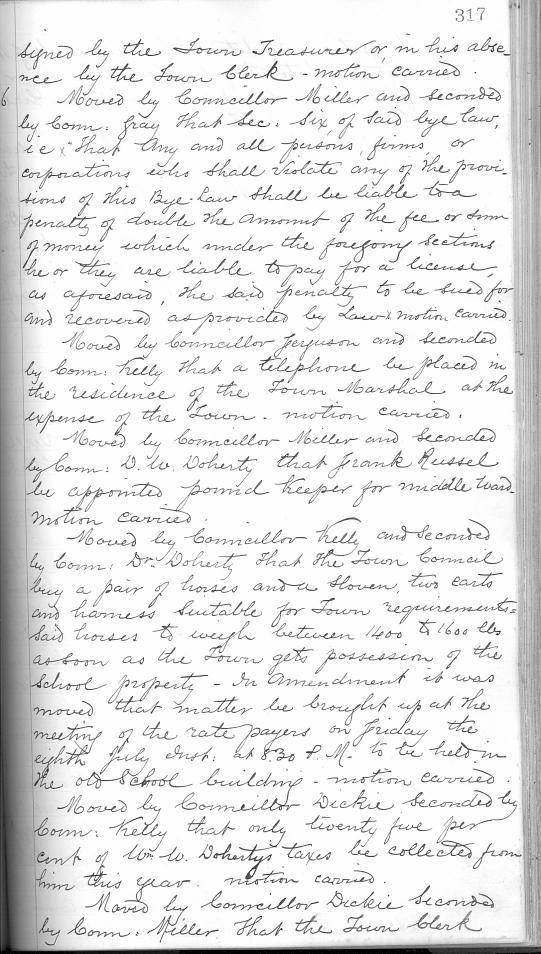 317
signed by the Town Treasurer or in his abse-
nce by the Town Clerk - motion carried.
6 Moved by Councillor Miller and seconded
by Coun: Gray that Sec: Six of said bye law,
i e "That Any and all persons, firms, or
corporations who shall violate any of the provi-
sions of this Bye-Law shall be liable to a
penalty of double the amount of the fee or sum
of money which under the foregoing sections
he or they are liable to pay for a license,
as aforesaid, the said penalty to be sued for
and recovered as provided by Law" motion carried.
Moved by Councillor Ferguson and seconded
by Coun: Kelly that a telephone be placed in
the residence of the Town Marshal at the
expense of the Town - motion carried.
Moved by Councillor Miller and seconded
by Coun: D. W. Doherty that Frank Russel
be appointed pound keeper for middle ward
motion carried.
Moved by Councillor Kelly and seconded
by Coun: Dr. Doherty that the Town Council
buy a pair of horses and a sloven, two carts
and harness suitable for Town requirements=
said horses to weigh between 1400 to 1600 lbs
as soon as the Town gets possession of the
School property - In Amendment it was
moved that matter be brought up at the
meeting of the rate payers on Friday the
eighth July Inst: at 8.30 P.M. to be held in
the old School building - motion carried.
Moved by Councillor Dickie seconded by
Coun: Kelly that only twenty five per
cent of Wm W. Doherty's taxes be collected from
him this year. motion carried.
Moved by Councillor Dickie seconded
by Coun: Miller that the Town Clerk